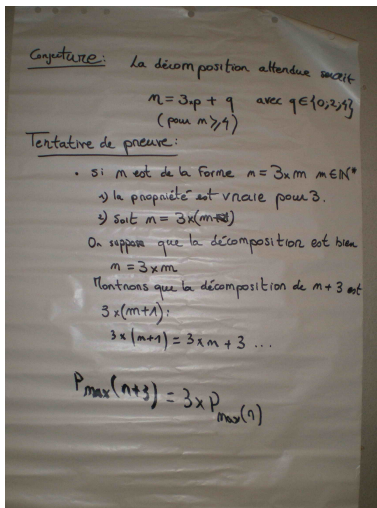 Conjecture: La décomposition attendue serait
n = 3×p + q avec q ∈ {0;2;4}
(pour n ≥ 4)
Tentative de preuve:
• Si n est de la forme n = 3×m m ∈ ℕ*
1) la propriété est vraie pour 3.
2) Soit n = 3×(m
On suppose que la décomposition est bien
n = 3×m
Montrons que la décomposition de n+3 est
3×(m+1):
3×(m+1) = 3×m + 3 ...
P max (n+3) = 3×P max (n)